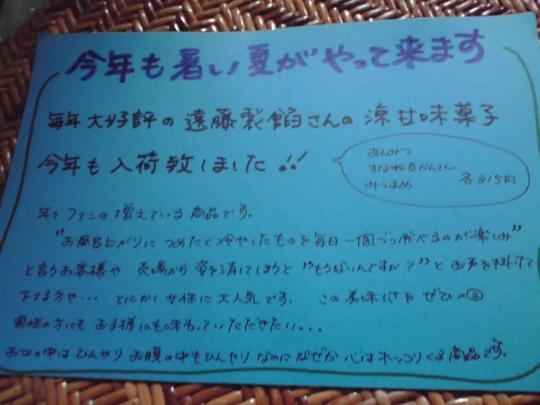 今年も暑い夏がやって来ます
毎年大好評の遠藤製餡さんの涼甘味菓子
今年も入荷致しました!!
あんみつ
みつまめ
各315円
年々ファンの増えている商品です。
"お風呂上がりにつめたく冷やしたものを毎日一個づつ食べるのが楽しみ"
と言うお客様や 売場から姿を消してしまうと"もうないんですか?"とお声を掛けて
下さる方や... とにかく女性に大人気です。この美味しさをぜひ
男性の方にもお子様にも味わっていただきたい...
お口の中はひんやりお腹の中もひんやりなのになぜか心はホッコリくる商品です。